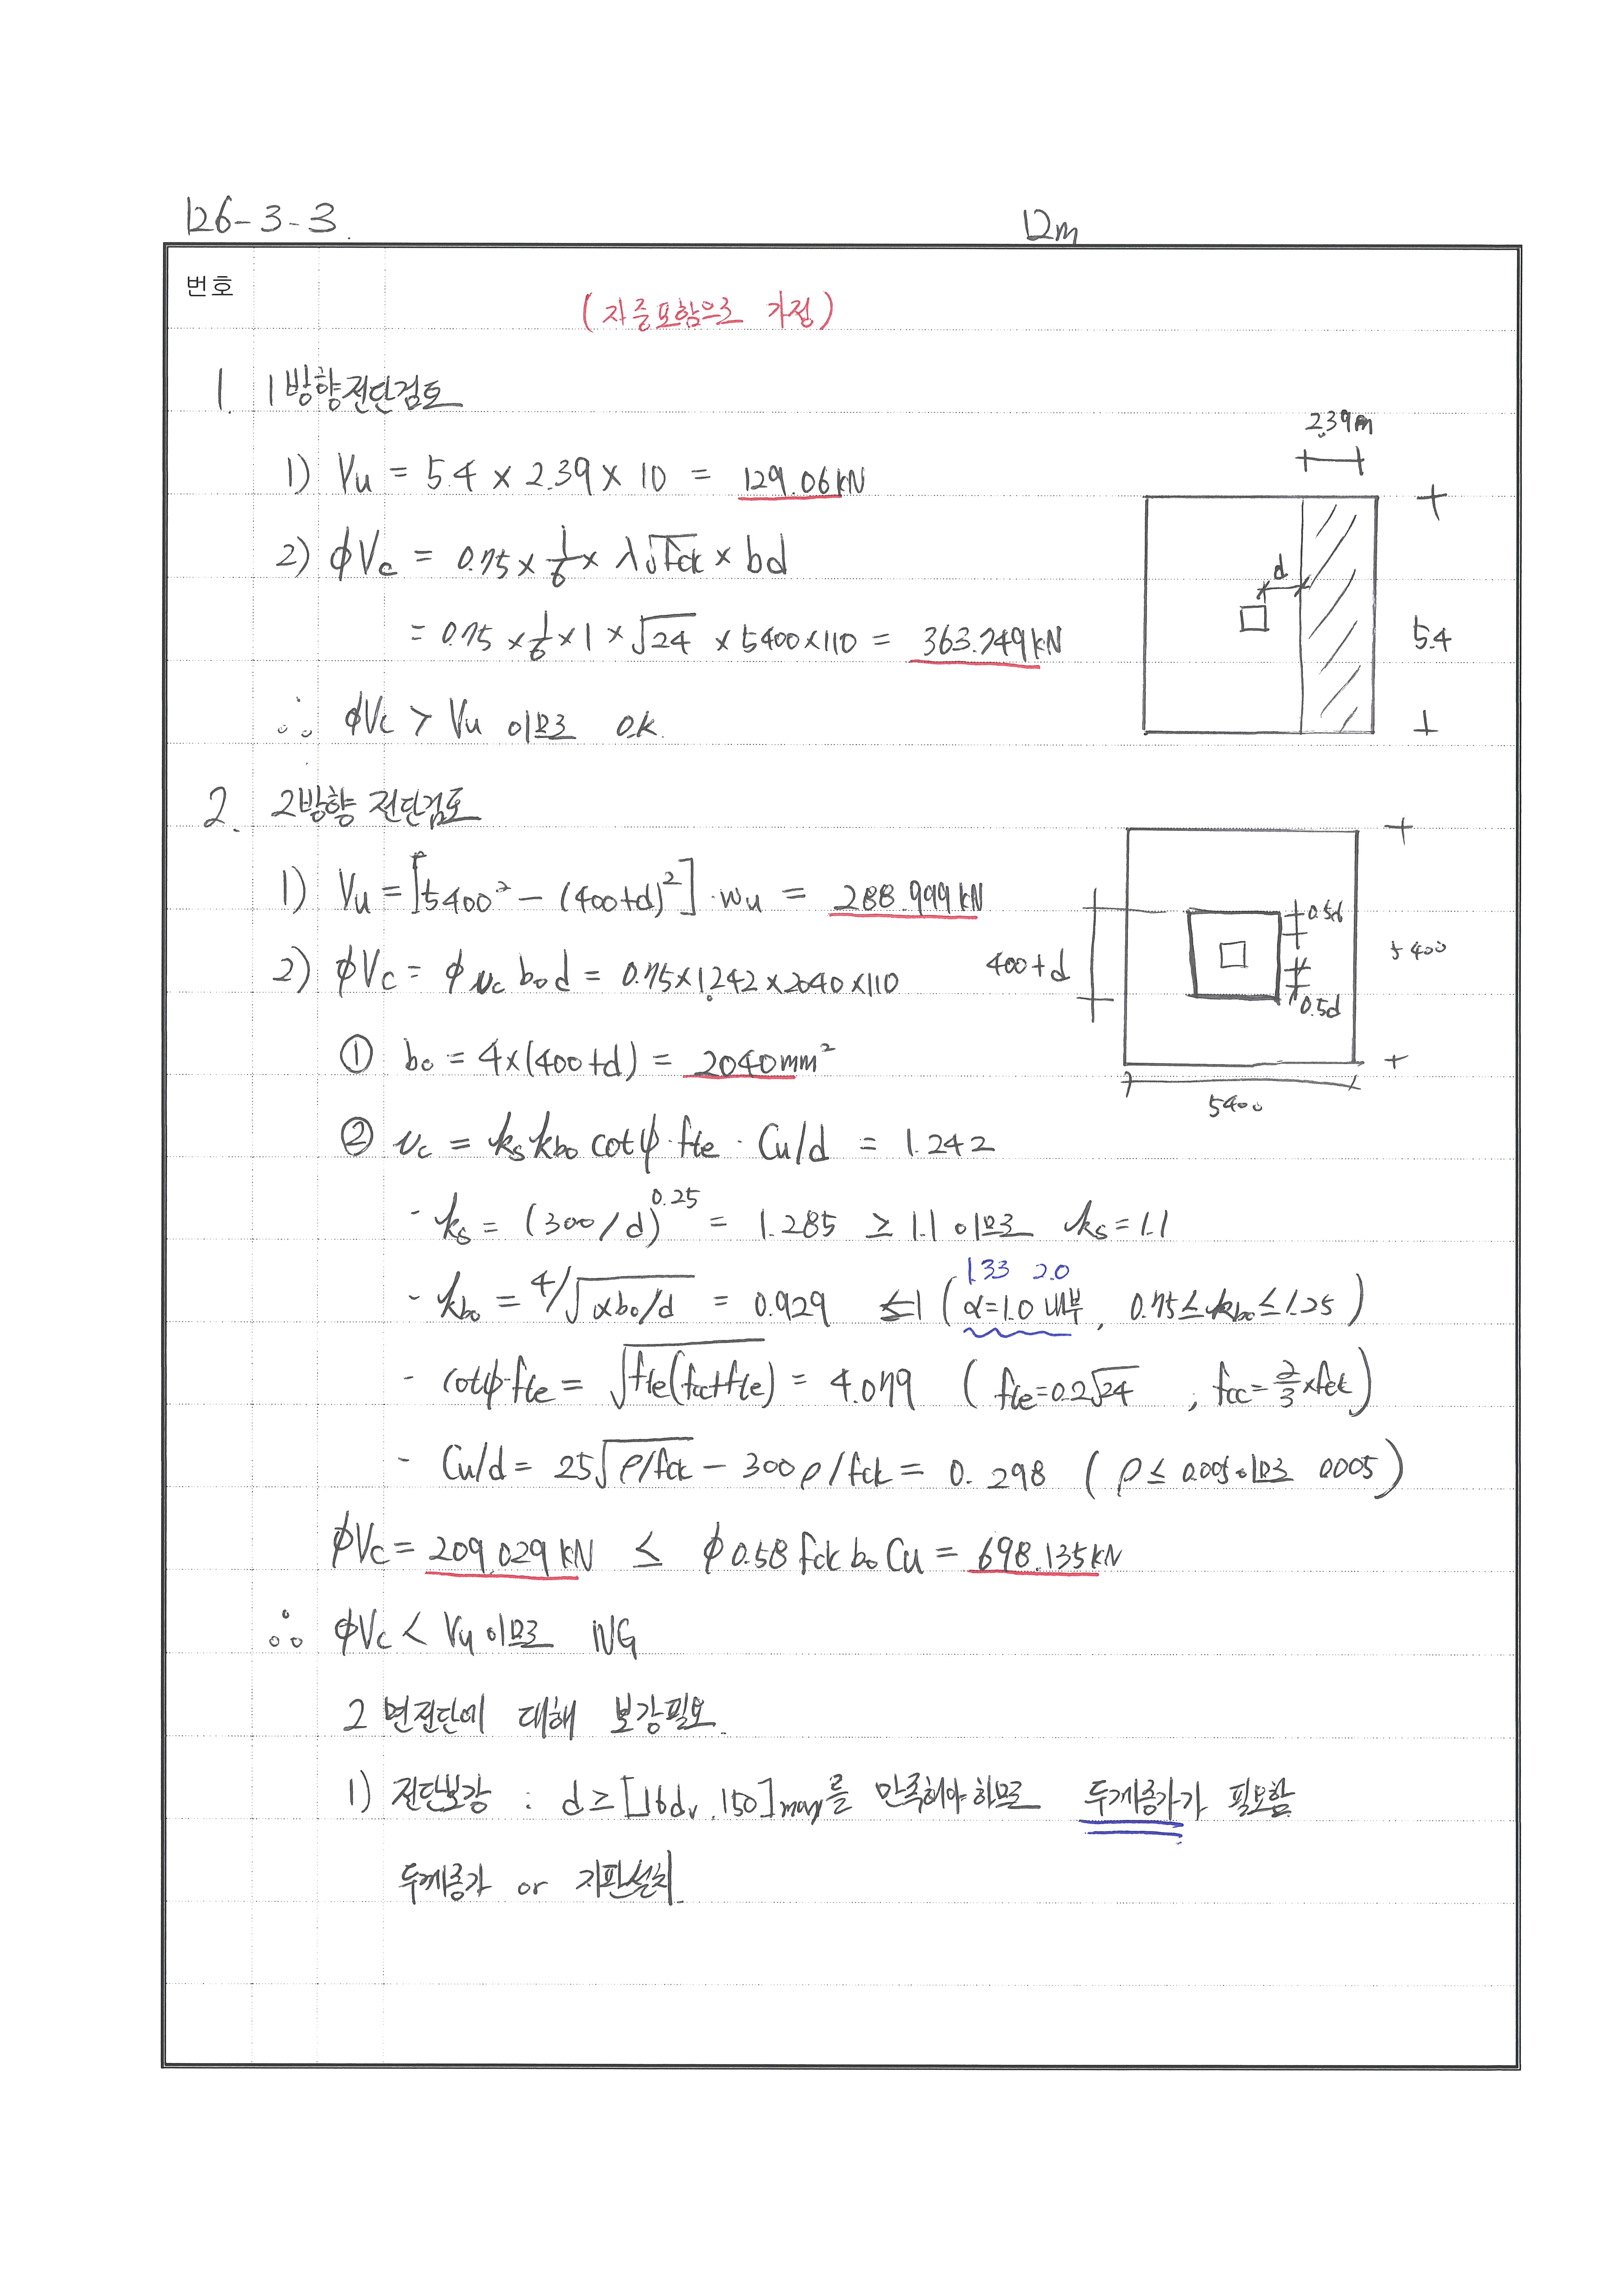 126-3-3.
12m
번호
(자중포함으로 가정)
1. 1방향전단검토
1) Vu = 5.4 × 2.39 × 10 = 129.06kN
2) φVc = 0.75 × 1/6 × λ√fck × bd
= 0.75 × 1/6 × 1 × √24 × 5400×110 = 363.749kN
∴ φVc > Vu 이므로 OK.
2.39m
d
5.4
2. 2방향 전단검토
1) Vu = [5400² - (400+d)²]·wu = 288.999kN
2) φVc = φ vc bo d = 0.75×1.242×2040×110
① bo = 4×(400+d) = 2040mm²
400+d
0.5d
0.5d
5400
5400
② vc = ks kbo cotψ·fte · Cu/d = 1.242
- ks = (300/d)^0.25 = 1.285 ≥ 1.1 이므로 ks = 1.1
1.33 2.0
- kbo = 4/√αbo/d = 0.929 ≤1 (α=1.0 내부, 0.75≤kbo≤1.25)
- cotψ·fte = √fte(fcc+fte) = 4.079 (fte=0.2√24, fcc=2/3×fck)
- Cu/d = 25√ρ/fck - 300ρ/fck = 0.298 (ρ≤ 0.005이므로 0.005)
φVc = 209.029kN ≤ φ0.58 fck bo Cu = 698.135kN
∴ φVc < Vu 이므로 NG
2면전단에 대해 보강필요.
1) 전단보강 : d≥[16dv, 150]max를 만족해야 하므로 두께증가가 필요함
두께증가 or 지판설치.